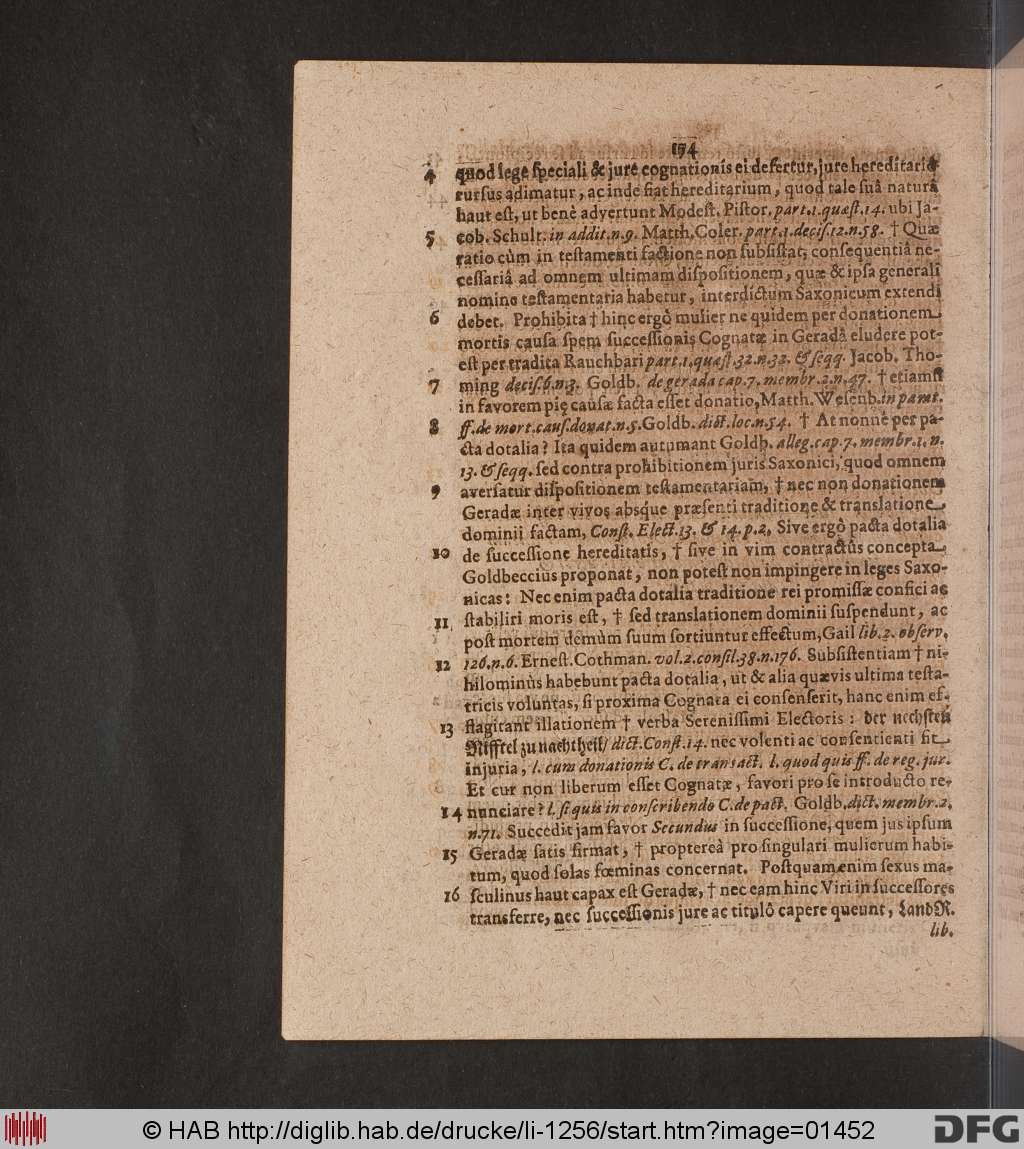 194
4 quod lege ſpeciali & jure cognationis ei defertur, jure hereditario
rurſus adimatur, ac inde fiat hereditarium, quod tale ſuâ naturâ
haut eſt, ut benè advertunt Modeſt. Piſtor. part. 1. quæſt. 14. ubi Ja-
5 cob. Schult. in addit. n. 9. Matth. Coler. part. 1. deciſ. 12. n. 58. † Quæ
ratio cùm in teſtamenti factione non ſubſiſtat, conſequentiâ ne-
ceſſariâ ad omnem ultimam diſpoſitionem, quæ & ipſa generali
nomine teſtamentaria habetur, interdictum Saxonicum extendi
6 debet. Prohibita † hinc ergò mulier ne quidem per donationem
mortis cauſa ſpem ſucceſſionis Cognatæ in Geradâ eludere pot-
eſt per tradita Rauchbari part. 1. quæſt. 32. n. 32. & ſeqq. Jacob. Tho-
7 ming deciſ. 6. n. 3. Goldb. de gerada cap. 7. membr. 2. n. 47. † etiamſi
in favorem pię cauſæ facta eſſet donatio, Matth. Weſenb. in parat.
8 ff. de mort. cauſ. donat. n. 5. Goldb. dict. loc. n. 54. † At nonnè per pa-
cta dotalia? Ita quidem autumant Goldb. alleg. cap. 7. membr. 1. n.
13. & ſeqq. ſed contra prohibitionem juris Saxonici, quod omnem
9 averſatur diſpoſitionem teſtamentariam, † nec non donationem
Geradæ inter vivos absque præſenti traditione & translatione
dominii factam, Conſt. Elect. 13. & 14. p. 2. Sive ergò pacta dotalia
10 de ſucceſſione hereditatis, † ſive in vim contractûs concepta
Goldbeccius proponat, non poteſt non impingere in leges Saxo-
nicas: Nec enim pacta dotalia traditione rei promiſſæ confici ac
11 ſtabiliri moris eſt, † ſed translationem dominii ſuſpendunt, ac
poſt mortem demùm ſuum ſortiuntur effectum, Gail lib. 2. obſerv.
12 126. n. 6. Erneſt. Cothman. vol. 2. conſil. 38. n. 176. Subſiſtentiam † ni-
hilominùs habebunt pacta dotalia, ut & alia quævis ultima teſta-
tricis voluntas, ſi proxima Cognata ei conſenſerit, hanc enim ef-
13 flagitant illationem † verba Sereniſſimi Electoris: der nechſten
Nifftel zu nachtheil/ dict. Conſt. 14. nec volenti ac conſentienti fit
injuria, l. cum donationis C. de transact. l. quod quis ff. de reg. jur.
Et cur non liberum eſſet Cognatæ, favori pro ſe introducto re-
14 nunciare? l. ſi quis in conſcribendo C. de pact. Goldb. dict. membr. 2.
n. 71. Succedit jam favor Secundus in ſucceſſione, quem jus ipſum
15 Geradæ ſatis firmat, † proptereà pro ſingulari mulierum habi-
tum, quod ſolas fœminas concernat. Poſtquam enim ſexus ma-
16 ſculinus haut capax eſt Geradæ, † nec eam hinc Viri in ſucceſſores
transferre, nec ſucceſſionis jure ac titulô capere queunt, LandR.
lib.
© HAB http://diglib.hab.de/drucke/li-1256/start.htm?image=01452
DFG